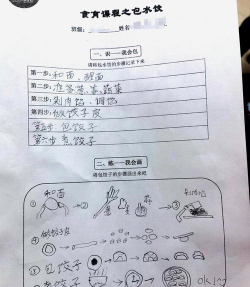 食育课程之包水饺
班级: 姓名
一、识——我会包
请将包水饺的步骤记录下来
第一步: 和面、醒面
第二步:
第三步: 剁肉馅、调馅
第四步: 做饺子皮
第五步 包饺子
第六步 煮饺子
二、练——我会画
请包饺子的步骤画出来吧
① 和面 ②
③
④
⑤ 包饺子
煮饺子
OK